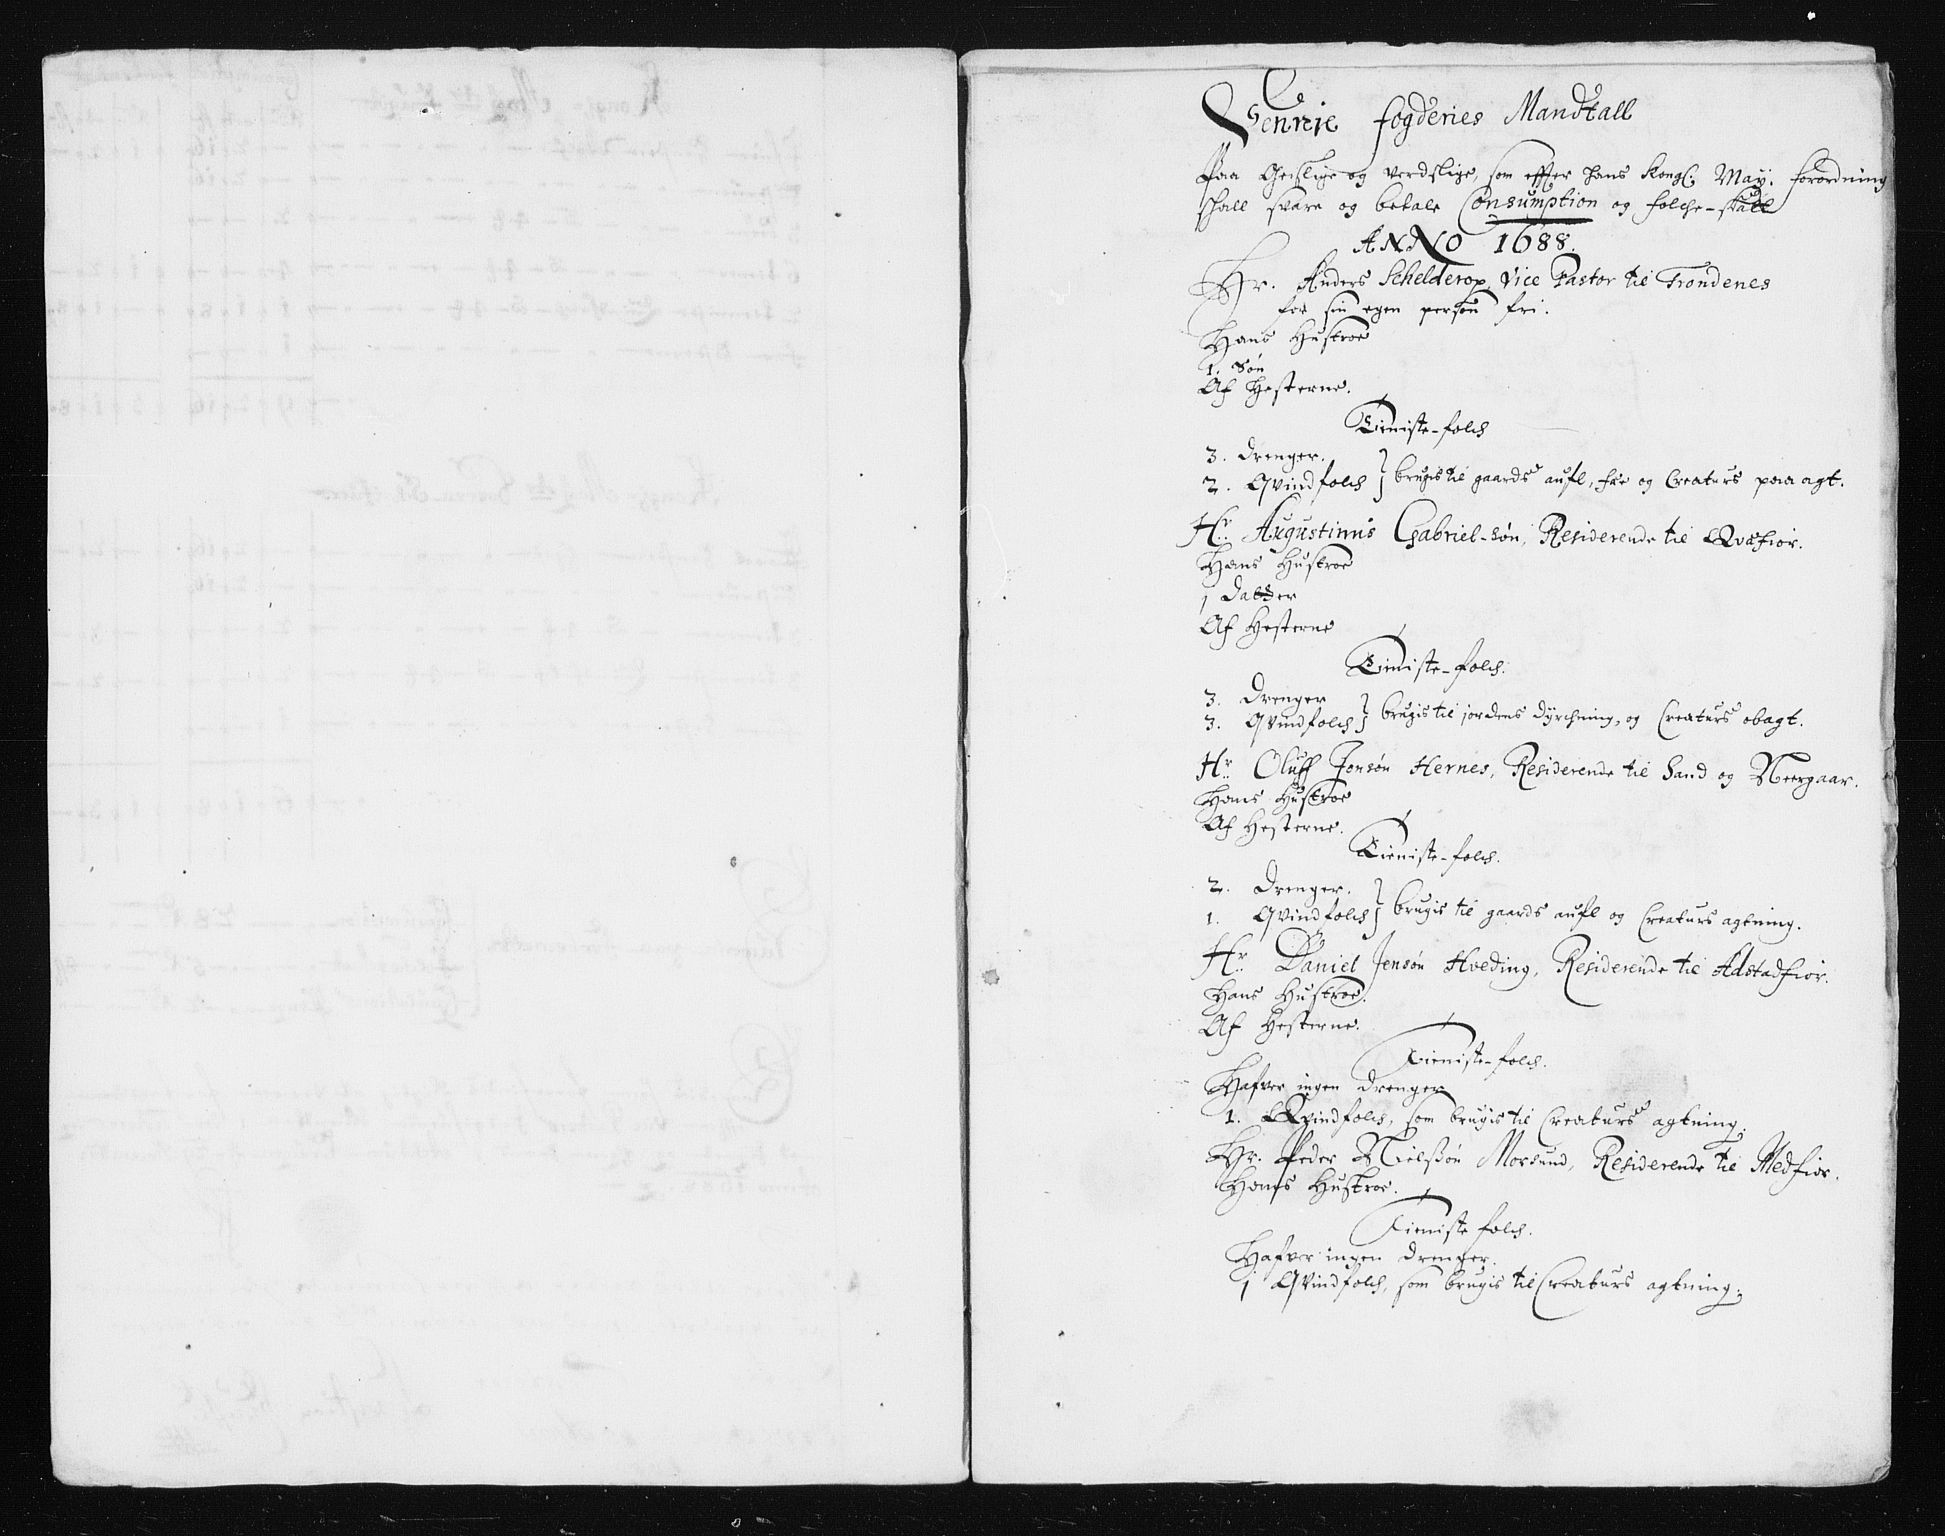 Sennie fogderies Mandtall
Paa Geistlige og verdslige, som effter hans Kongl: May: forordning
skall svare og betale Consumption og folche-skatt
ANNO 1688.
Hr. Anders Schelderop, Vice Pastor til Trondenes
for sin egen person fri.
Hans Hustroe
1. Søn
Af Hesterne.
Tieniste-folch
3. Drenger.
2. Qvindfolch } brugis til gaards aufl, fæe og Creaturs paa agt.
Hr. Augustinus Gabriel-søn, Residerende til Qvæfior.
Hans Hustroe
1 Datter
Af Hesterne
Tieniste-folch.
3. Drenger
3. Qvindfolch } brugis til jordens dyrchning, og Creaturs obagt.
Hr. Oluff Jonsøn Hernes, Residerende til Sand og Neergaar.
Hans Hustroe
Af Hesterne.
Tieniste-folch.
2. Drenger.
1. Qvindfolch } brugis til gaards aufl og Creaturs agtning.
Hr. Daniel Jensøn Hveding, Residerende til Adstadfior.
Hans Hustroe.
Af Hesterne.
Tieniste-folch.
Hafver ingen drenger
1. Qvindfolch, som brugis til Creaturs agtning.
Hr. Peder Nielsßøn Morsund, Residerende til Medfior.
Hans Hustroe.
Tieniste folch.
Hafver ingen drenger.
1 Qvindfolch, som brugis til Creaturs agtning.